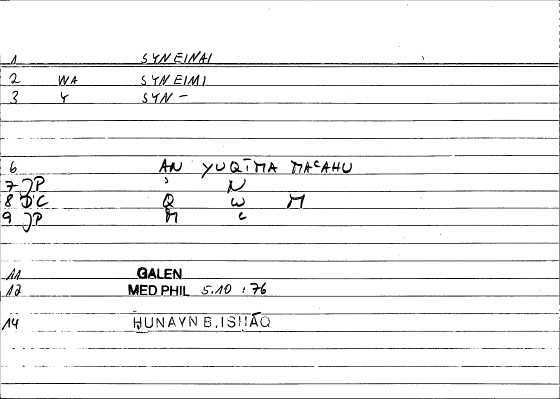 1 SYNEINAI
2 WA SYNEIMI
3 Y SYN-
6 AN YUQĪMA MAᶜAHU
7 JP ʾ N
8 DC Q W M
9 JP M ᶜ
11 GALEN
12 MED PHIL 5.10 :76
14 ḤUNAYN B. ISḤĀQ